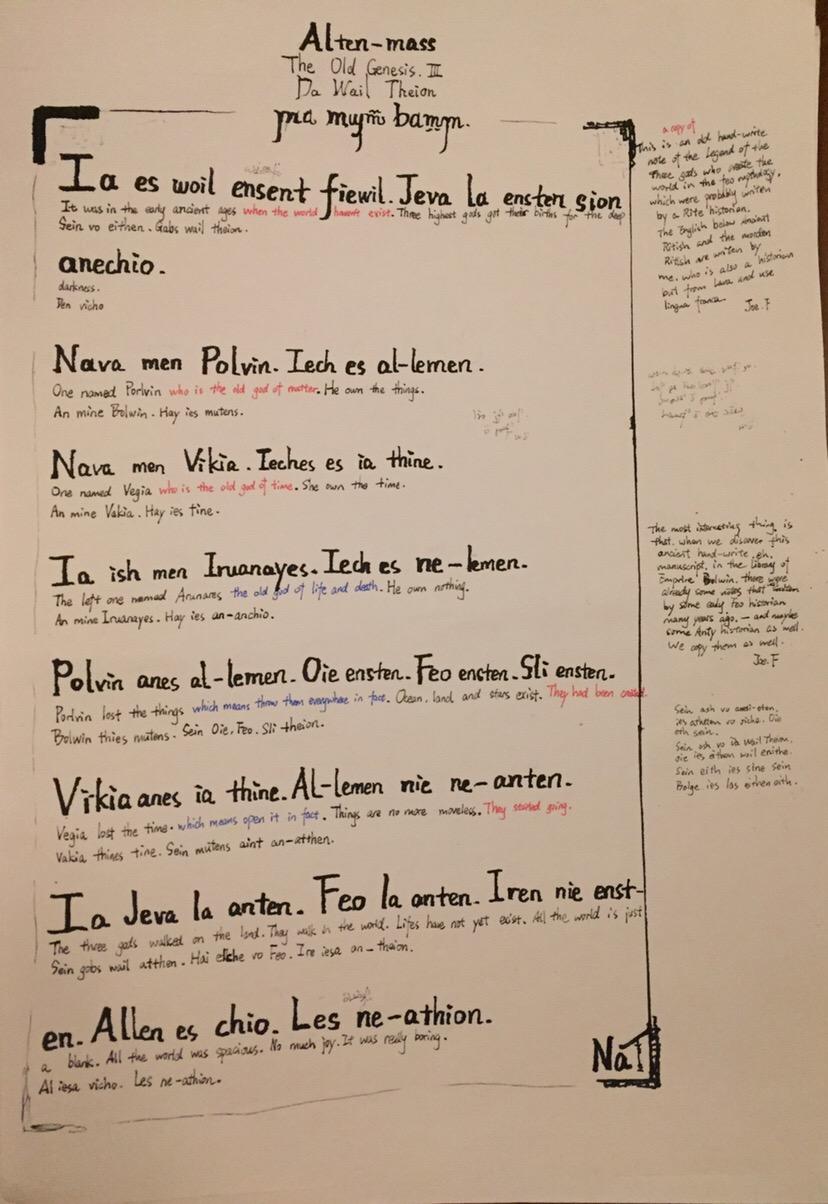 Alten-mass
The Old Genesis. III
Da Wail Theion
Ia es woil ensent fiewil. Jeva la ensten sion
It was in the early ancient ages when the world haven't exist. Three highest gods got their births for the deep
Sein vo eithen. Gabs wail theion.
anechio.
darkness.
Den vicho
Nava men Polvin. Iech es al-lemen.
One named Porlvin who is the old god of matter. He own the things.
An mine Bolwin. Hay ies mutens.
Nava men Vikia. Ieches es ia thine.
One named Vegia who is the old god of time. She own the time.
An mine Vakia. Hay ies tine.
Ia ish men Iruanayes. Iech es ne-lemen.
The left one named Arunares the old god of life and death. He own nothing.
An mine Iruanayes. Hay ies an-anchio.
Polvin anes al-lemen. Oie ensten. Feo encten. Sli ensten.
Porlvin lost the things which means throw them everywhere in face. Ocean, land and stars exist. They had been
Bolwin thies mutens. Sein Oie. Feo. Sli theion.
Vikia anes ia thine. Al-lemen nie ne-anten.
Vegia lost the time. which means open it in fact. Things are no more moveless. They started going.
Vakia thines tine. Sein mutens aint an-atthen.
Ia Jeva la anten. Feo la anten. Iren nie enst-
The three gods walked on the land. They walk in the world. Lifes have not yet exist. All the world is just
Sein gobs wail atthen. Hai elche vo Feo. Ire iesa an-theion.
en. Allen es chio. Les ne-athion.
a blank. All the world was spacious. No much joy. It was really boring.
Al iesa vicho. Les ne-athion.
Na
a copy of
This is an old hand-write
note of the Legend of the
Three gods who create the
world in the Feo mythology,
which were probably writen
by a Rite historian.
The English below Ancient
Ritish and the morden
Ritish are writen by
me, who is also a historian
but from Lava and use
lingua franca.
Joe. F
The most interesting thing is
that, when we discover this
ancient hand-write, eh,
manuscript, in the library of
Emprire Bolwin, there were
already some notes that
by some early Feo historian
many years ago. — and maybe
some Anty historian as well.
We copy them as well.
Joe. F
Sein ash vo
ies atheten vo viche. Oie
eth sein.
Sein ash vo ia Wail Theion.
oie ies eithon wail enithe.
Sein eith ies sine sein
Bolge ies las eithen aith.